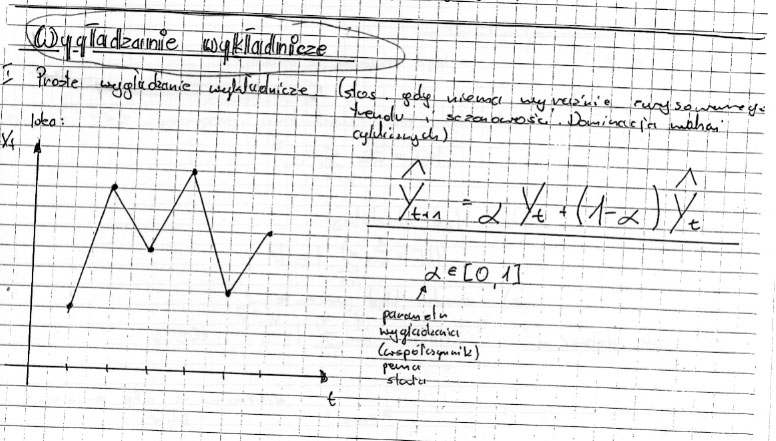 Wygładzanie wykładnicze
I. Proste wygładzanie wykładnicze (stos. gdy niema wyraźnie zarysowanego
trendu i sezonowości. Dominacja wahań
cyklicznych)
Idea:
Yt
Ŷt+1 = α Yt + (1-α) Ŷt
α ∈ [0,1]
parametr
wygładzania
(współczynnik)
pewna
stała
t